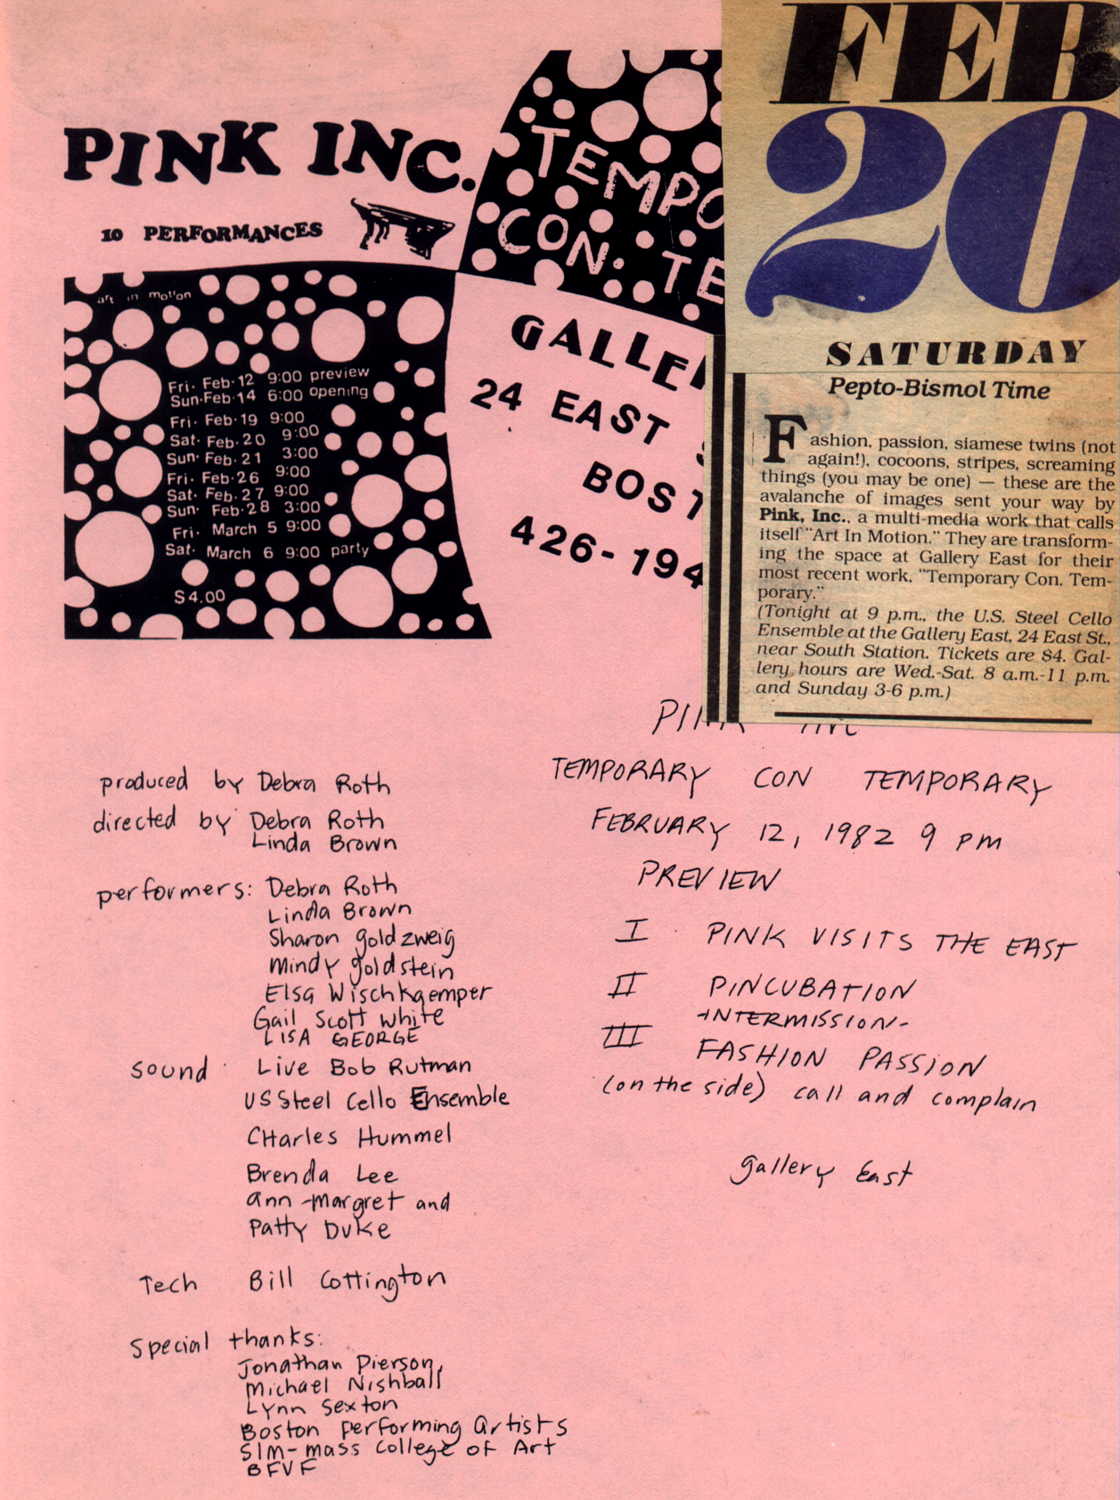 PINK INC.
10 PERFORMANCES
art in motion
Fri. Feb. 12 9:00 preview
Sun. Feb. 14 6:00 opening
Fri. Feb. 19 9:00
Sat. Feb. 20 9:00
Sun. Feb. 21 3:00
Fri. Feb. 26 9:00
Sat. Feb. 27 9:00
Sun. Feb. 28 3:00
Fri. March 5 9:00
Sat. March 6 9:00 party
$4.00
TEMPO
CON. TE
GALLE
24 EAST
BOST
426-194
FEB
20
SATURDAY
Pepto-Bismol Time
Fashion, passion, siamese twins (not
again!), cocoons, stripes, screaming
things (you may be one) — these are the
avalanche of images sent your way by
Pink, Inc., a multi-media work that calls
itself "Art In Motion." They are transform-
ing the space at Gallery East for their
most recent work, "Temporary Con, Tem-
porary."
(Tonight at 9 p.m., the U.S. Steel Cello
Ensemble at the Gallery East, 24 East St.,
near South Station. Tickets are $4. Gal-
lery hours are Wed.-Sat. 8 a.m.-11 p.m.
and Sunday 3-6 p.m.)
produced by Debra Roth
directed by Debra Roth
Linda Brown
performers: Debra Roth
Linda Brown
Sharon goldzweig
Mindy goldstein
Elsa Wischkaemper
Gail Scott White
LISA GEORGE
Sound Live Bob Rutman
US Steel Cello Ensemble
Charles Hummel
Brenda Lee
ann-margret and
Patty Duke
Tech Bill Cottington
Special thanks:
Jonathan Pierson,
Michael Nishball
Lynn Sexton
Boston performing artists
SIM-mass College of Art
BFVF
PINK INC
TEMPORARY CON TEMPORARY
FEBRUARY 12, 1982 9 PM
PREVIEW
I PINK VISITS THE EAST
II PINCUBATION
-INTERMISSION-
III FASHION PASSION
(on the side) call and complain
gallery East